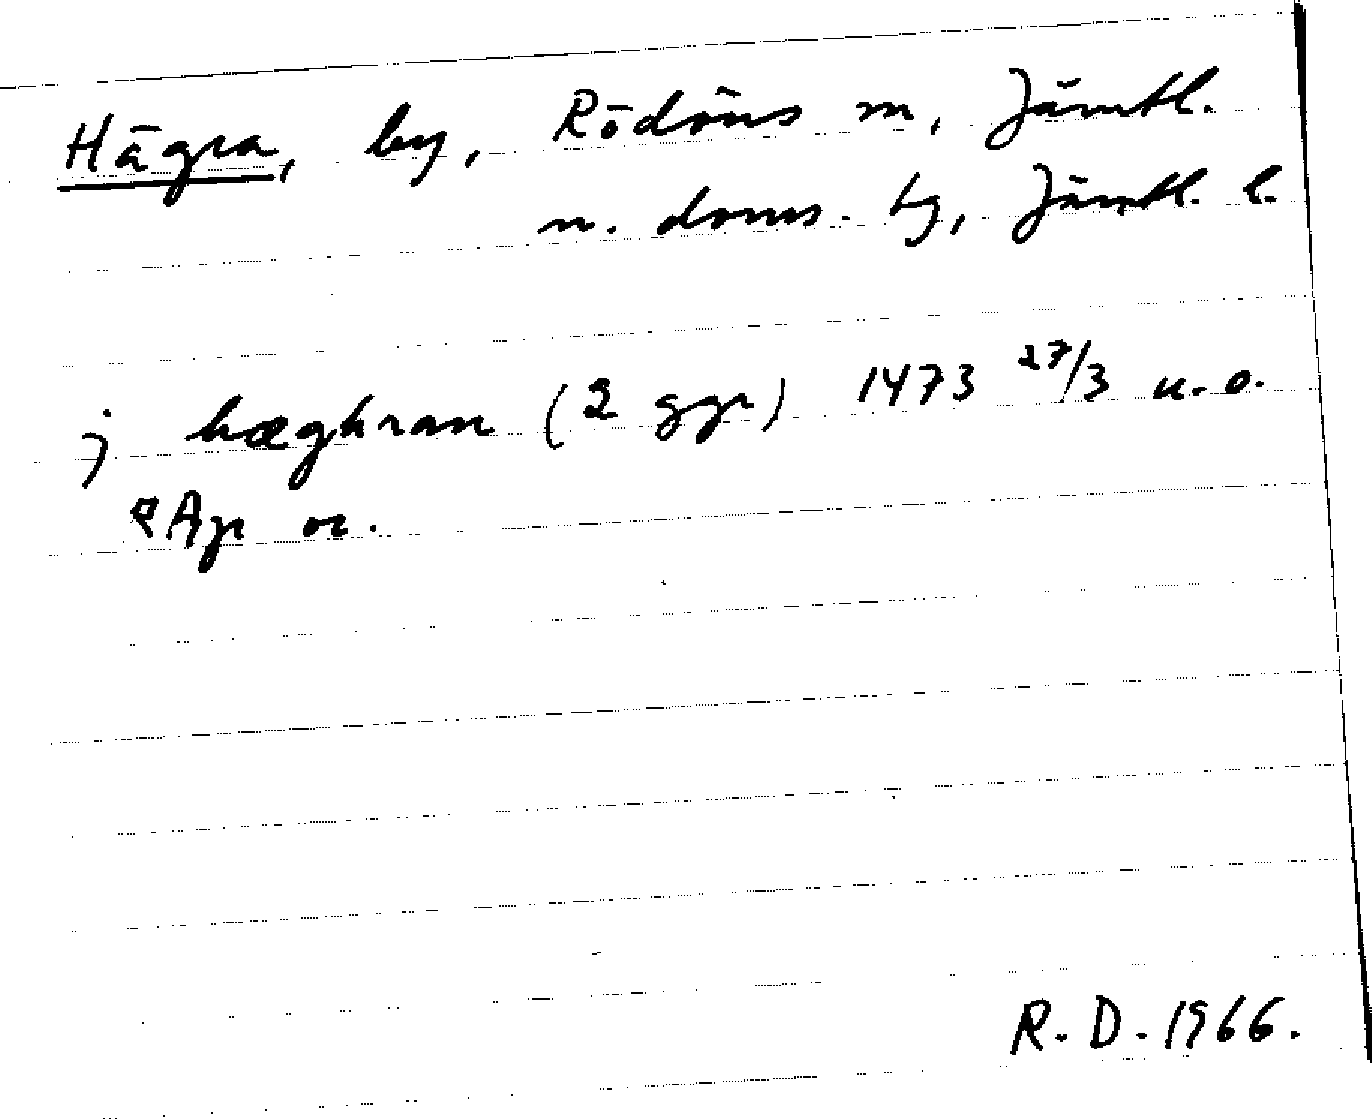 Hägra, by, Rödöns sn, Jämtl.
n. doms. by, Jämtl. l.
j hæghran (2 ggr) 1473 27/3 u.o.
RAp or.
R.D. 1966.